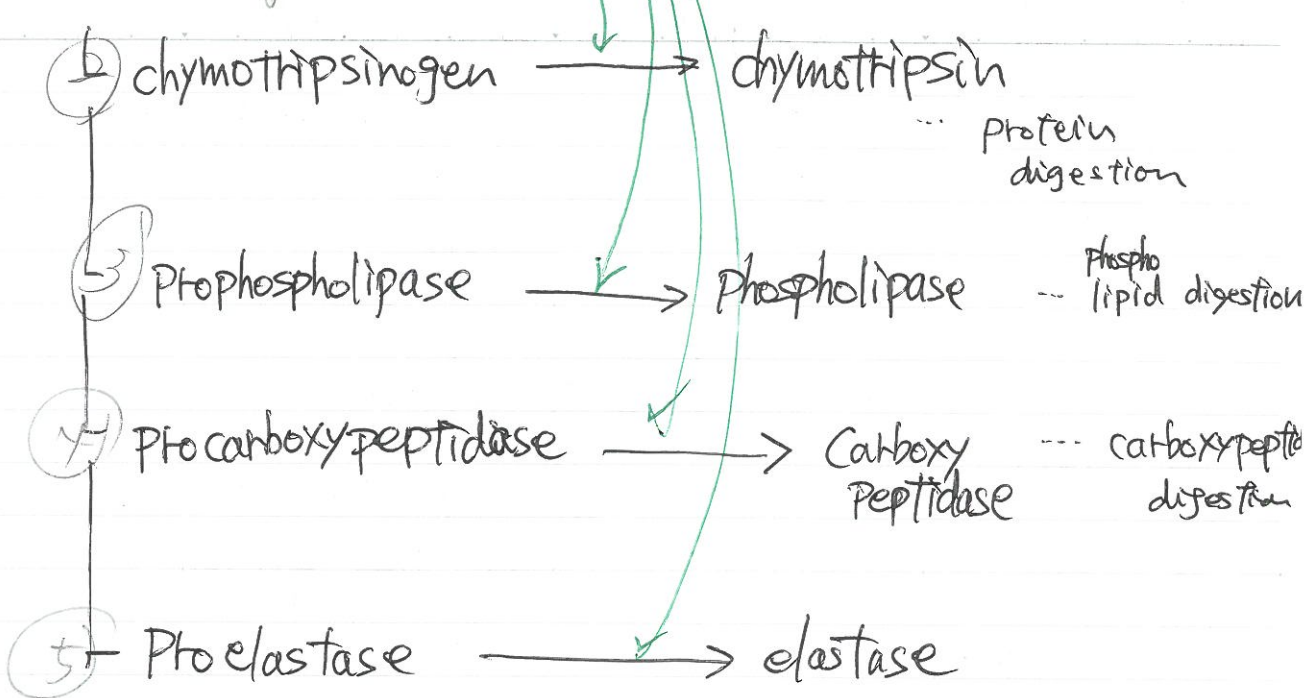 2 chymotripsinogen → chymotripsin
... protein
digestion
3 Prophospholipase → phospholipase ... phospho
lipid digestion
4 Procarboxypeptidase → Carboxy
peptidase ... carboxypeptid
digestion
5 Proelastase → elastase